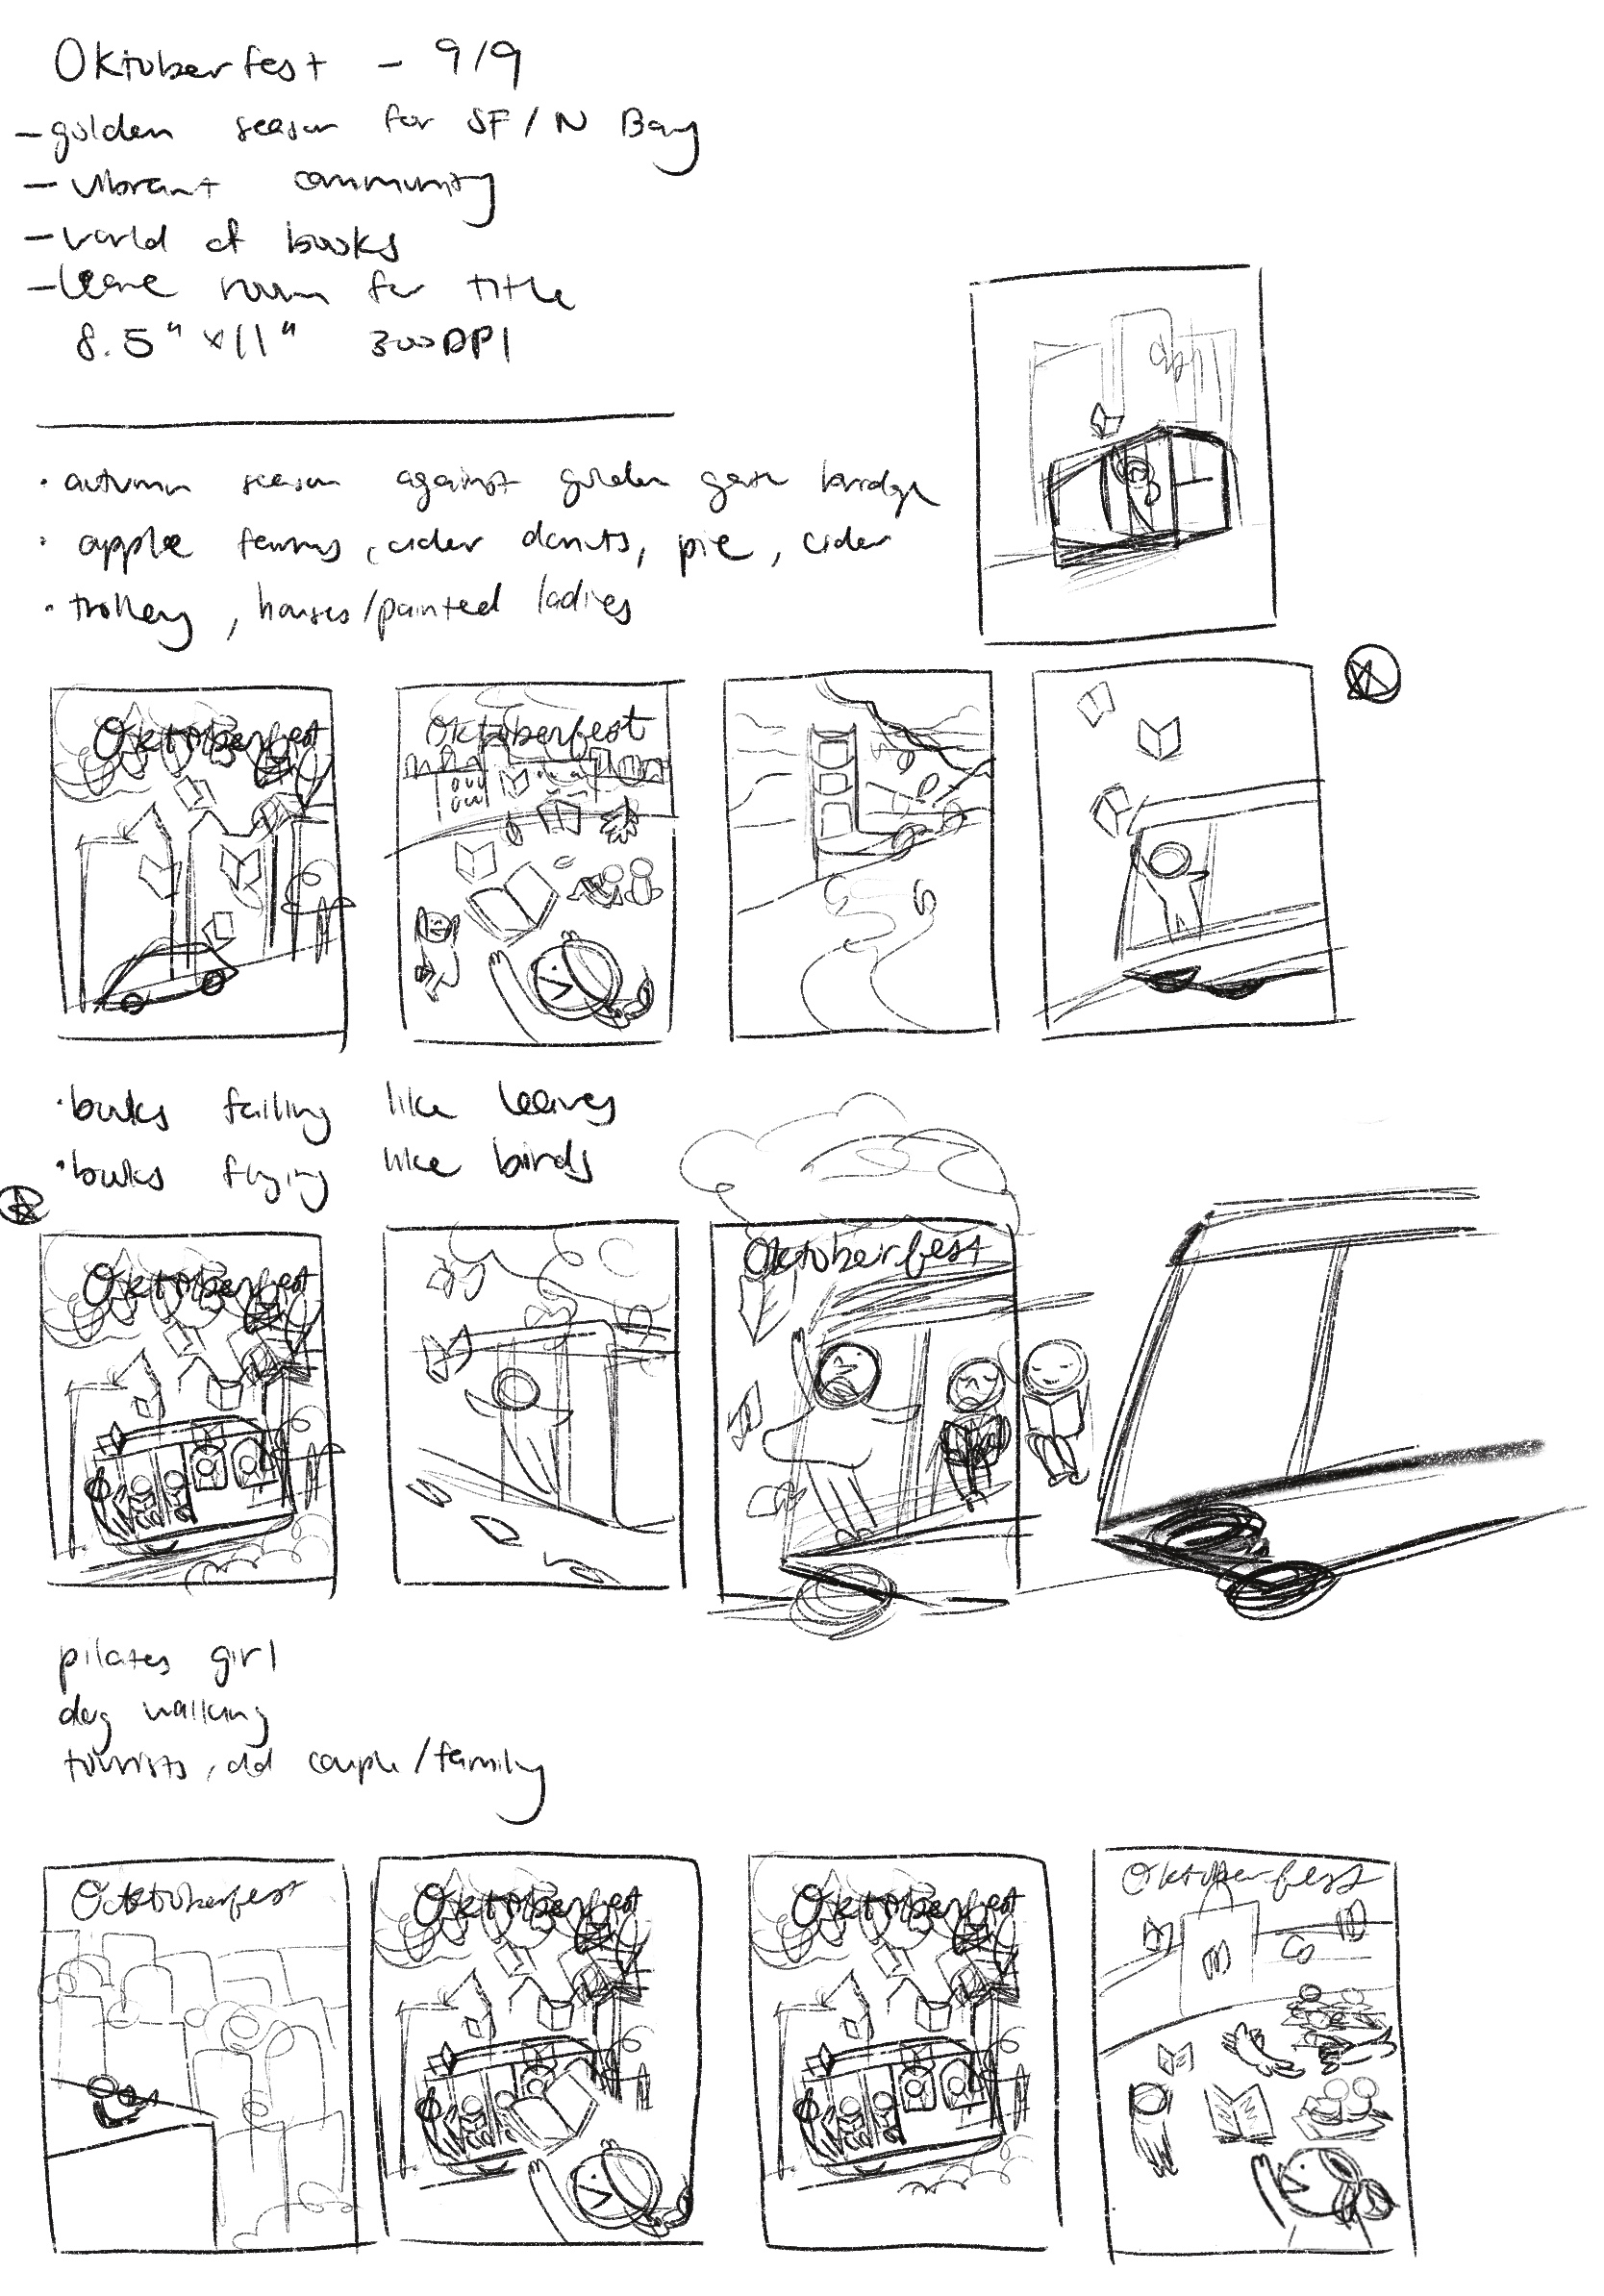 Oktoberfest - 9/9
- golden season for SF/N Bay
- vibrant community
- world of books
- leave room for title
8.5" x 11" 300DPI
• autumn season against golden gate bridge
• apple farms, cider donuts, pie, cider
• trolley, houses/painted ladies
Oktoberfest
Oktoberfest
• books falling like leaves
• books flying like birds
Oktoberfest
Oktoberfest
pilates girl
dog walking
tourists, old couple/family
Oktoberfest
Oktoberfest
Oktoberfest
Oktoberfest